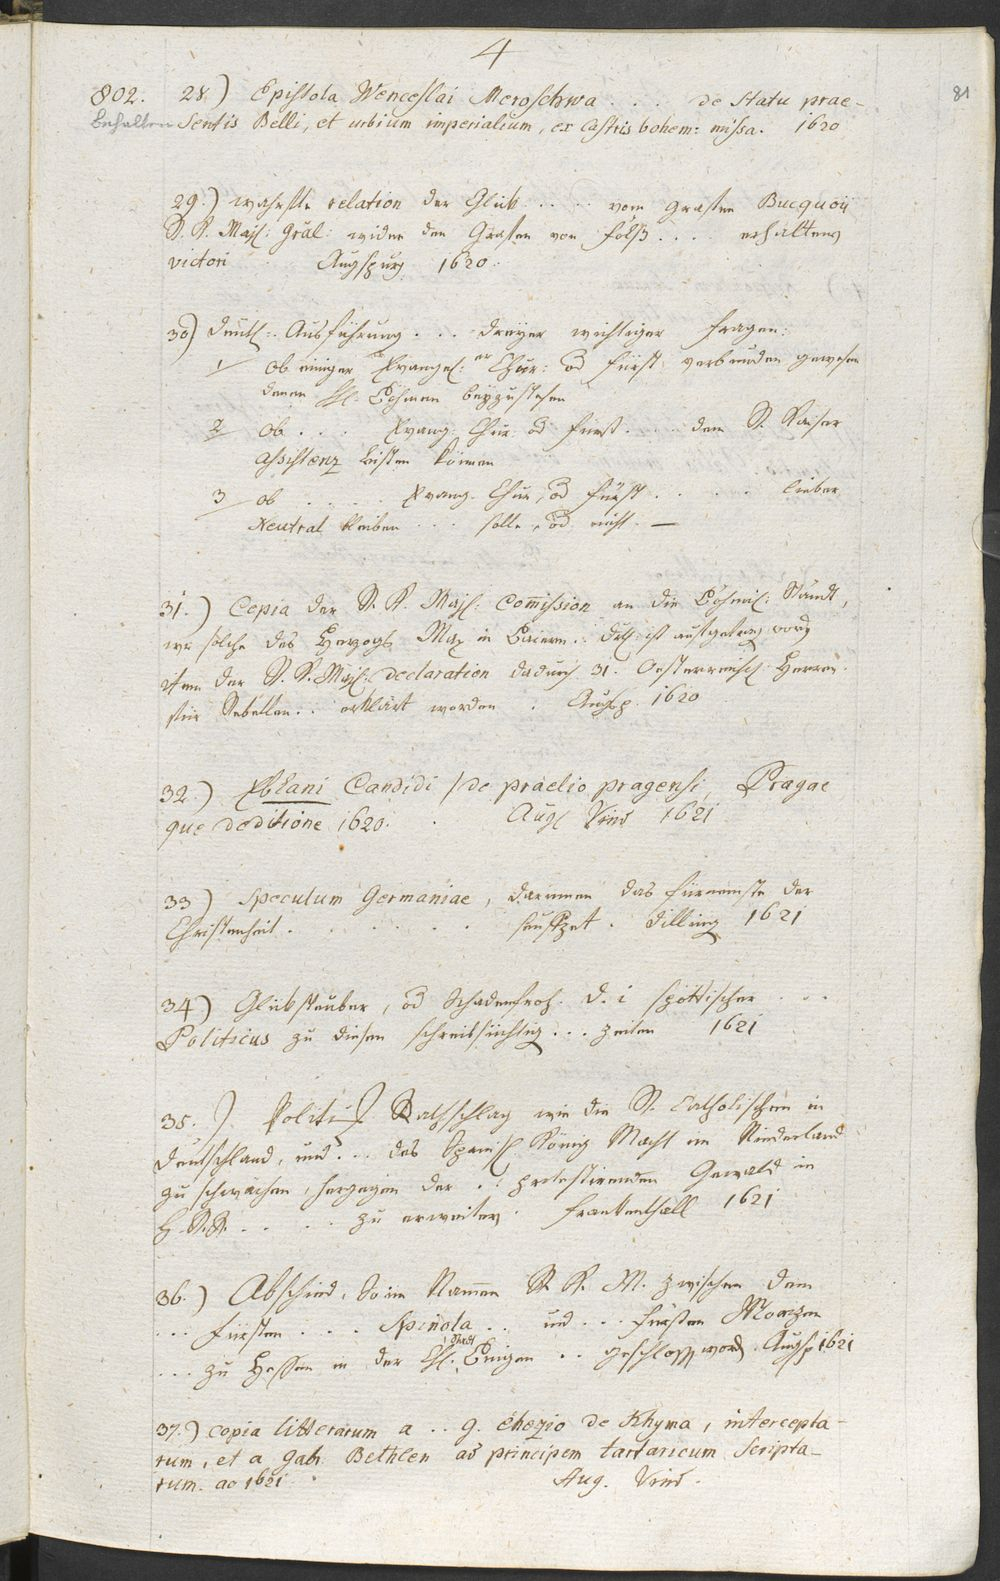 4
81
802. 28) Epistola Wenceslai Meroschwa . . . de Statu prae-
behalten Sentis Belli, et urbium imperialium, ex Castris bohem: missa. 1620
29.) wahrhafte relation der Glük . . . . vom Grafen Bucquoii
R. K. Maj: Gral: wider den Grafen von . . . . erhalten
victori Augspurg 1620.
30) Deutl: Ausführung . . . dreyer wichtiger Fragen:
1/ ob einiger Evangel: er Chur: od Fürst verbunden gewesen
denen Böhmen beyzustehen
2 ob . . . Evang: Chur od Fürst . . . . dem R. Kaiser
assistenz leisten können
3 ob . . . . Evang. Chur, od Fürst . . . . lieber
Neutral bleiben . . . solle, od nicht. —
31.) Copia der R. K. Maj: Commission an die Böhmis: Ständt,
wie solche des Herzogs Max in Baiern . . ist worden
item der R. K. Maj: declaration dadurch 31. Oesterreichisch: Herren
für Rebellen . . erklärt worden . Augsp. 1620
32.) Candidi / de praelio pragensi, Pragae
que deditione 1620. . Aug Vind 1621
33) Speculum Germaniae, darinnen das fürnemste der
Christenheit . . . . . . . Dilling 1621
34) Glükstauber, od Schadenfroh. d. i spöttischer . . .
Politicus zu diesen schreibsüchtig . . . Zeiten 1621
35.) Politis: Rathschlag wie die R. Catholischen in
Deutschland, und . . . des Spanis: König Macht im Niederland
zu schwächen, hergegen der . . protestirenden Gewald in
H. R. R. . . . . zu erweitern . Frankenthall 1621
36.) Abschied, So im Namen R. K. M. zwischen dem
. . . Fürsten . . . Spinola . . und . . . Fürsten Morizen
. . . zu Hessen in der Stadt Bingen . . geschlossen word. Augsp 1621
37.) Copia litterarum a . . g. de Rhyma, intercepta-
rum, et a Gabr. Bethlen ad principem tartaricum Scripta-
rum. ao 1621 Aug. Vind.